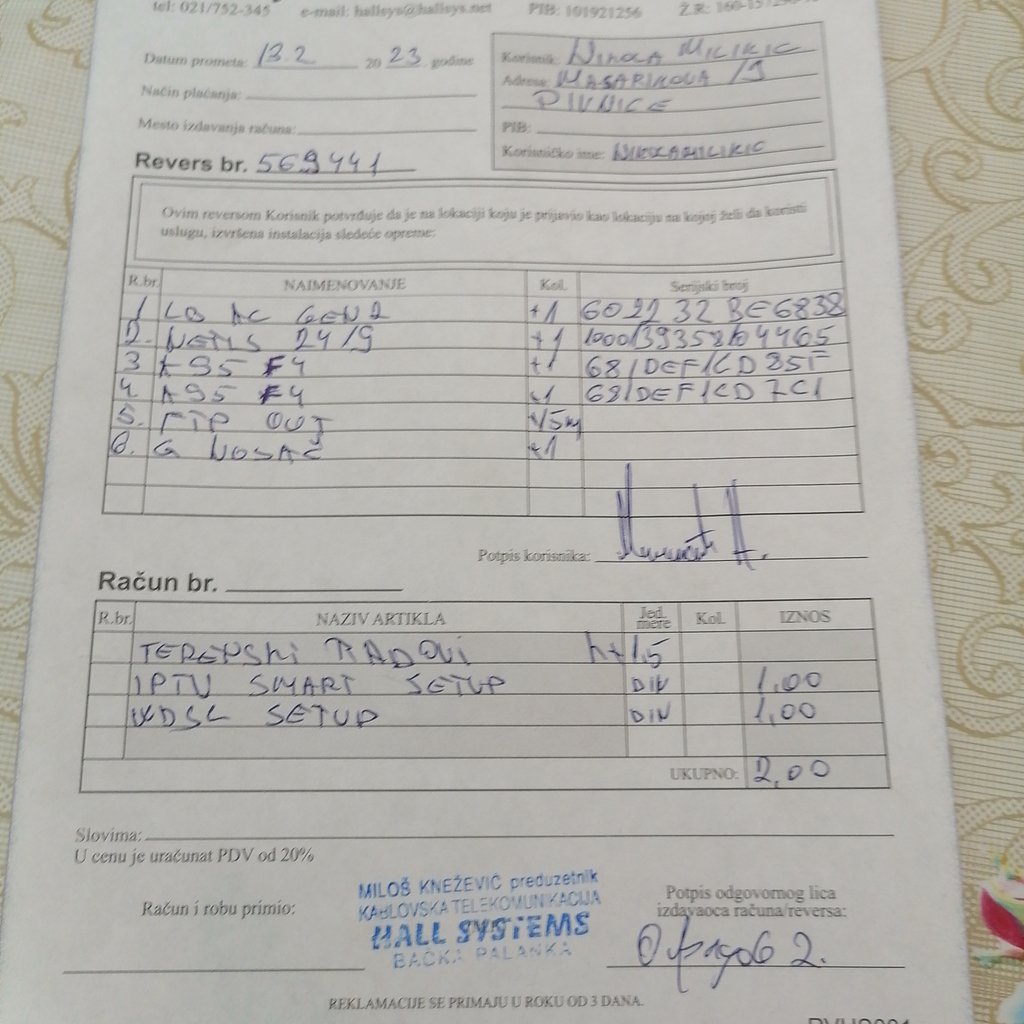 tel: 021/752-345 e-mail: hallsys@hallsys.net PIB: 101921256 Ž.R: 160-
Datum prometa: 13.2 2023 godine
Način plaćanja:
Mesto izdavanja računa:
Revers br. 569441
Korisnik: NIKOLA MILIKIC
Adresa: MASARIKOVA 19
PIVNICE
PIB:
Korisničko ime: NIKOLAMILIKIC
Ovim reversom Korisnik potvrđuje da je na lokaciji koju je prijavio kao lokaciju na kojoj želi da koristi
uslugu, izvršena instalacija sledeće opreme:
R.br. NAIMENOVANJE Kol. Serijski broj
1 LB AC GEN2 +1 602232BE6838
2. NETIS 24/9 +1
3 A95 F4 +1 681DEF1CD85F
4. A95 F4 +1 681DEF1CD7C1
5. FTP OUT
6. G NOSAČ +1
Potpis korisnika:
Račun br.
R.br. NAZIV ARTIKLA Jed. mere Kol. IZNOS
TERENSKI RADOVI h+1,5
IPTV SMART SETUP DIN 1,00
WDSL SETUP DIN 1,00
UKUPNO: 2,00
Slovima:
U cenu je uračunat PDV od 20%
Račun i robu primio:
MILOŠ KNEŽEVIĆ preduzetnik
KABLOVSKA TELEKOMUNIKACIJA
HALL SYSTEMS
BAČKA PALANKA
Potpis odgovornog lica
izdavaoca računa/reversa:
REKLAMACIJE SE PRIMAJU U ROKU OD 3 DANA.